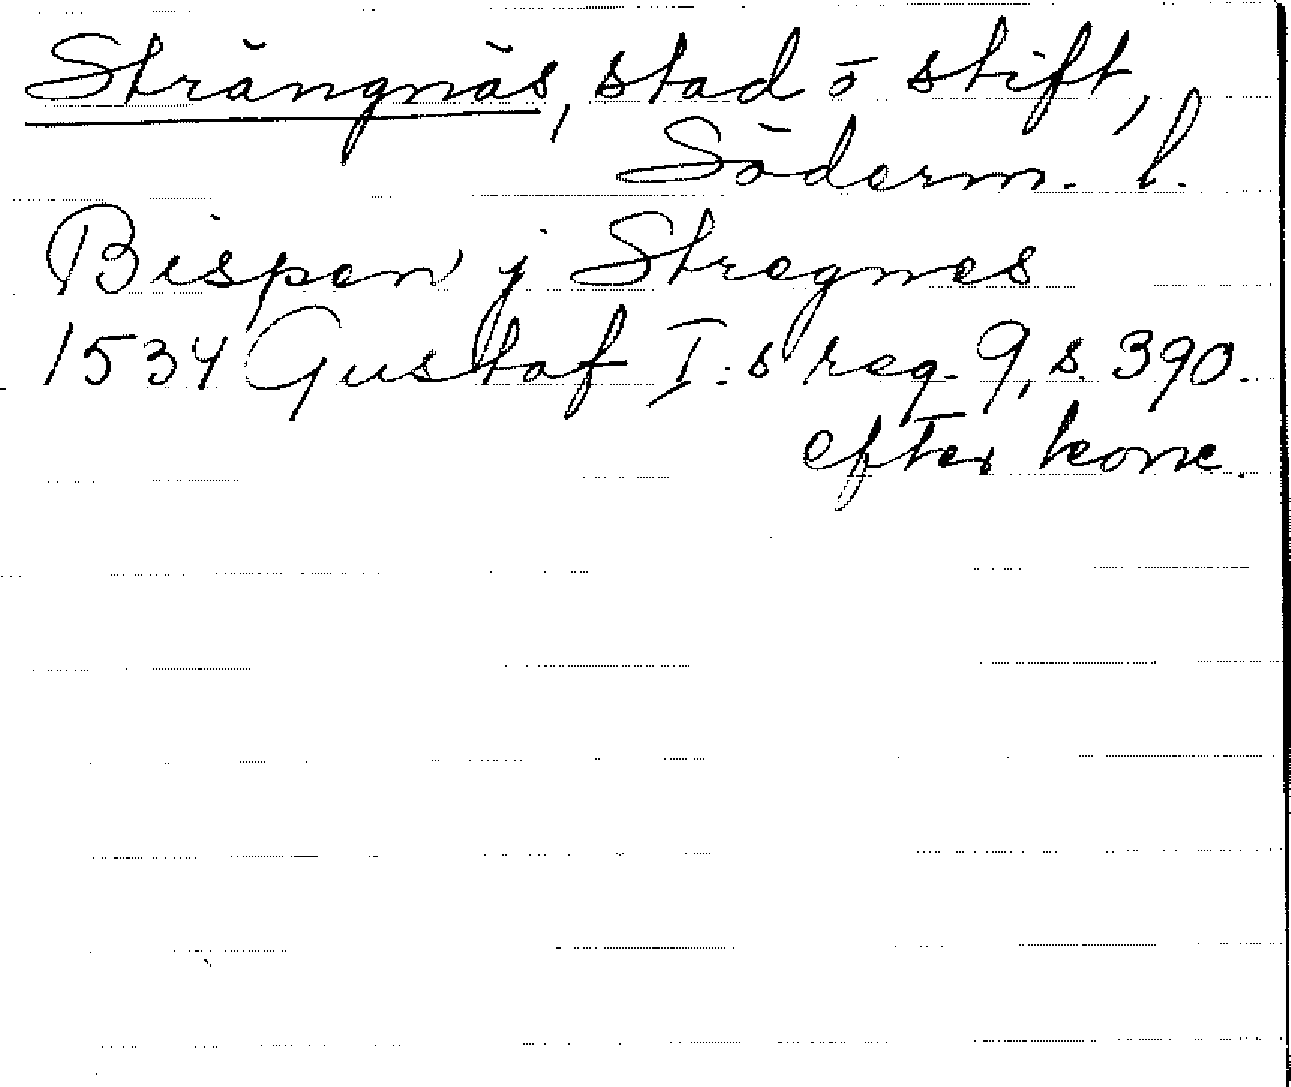 Strängnäs, stad o stift,
Söderm. l.
Bispen j Stregnes
1534 Gustaf I:s reg. 9, s. 390.
efter konc.